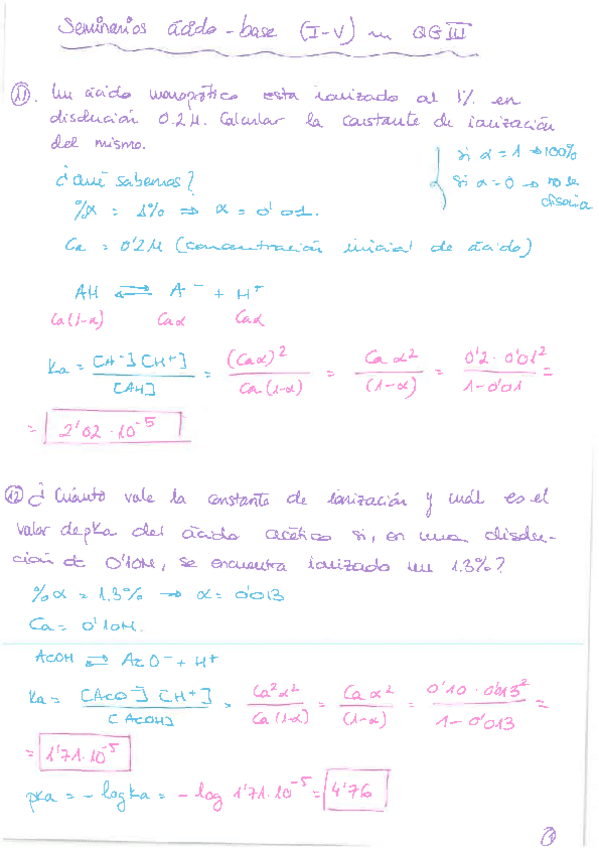 Seminarios ácido-base (I-V) en QGIII
⑪. Un ácido monoprótico esta ionizado al 1% en
disolución 0.2M. Calcular la constante de ionización
del mismo.
si α = 1 → 100%
si α = 0 → no se
disocia
¿Qué sabemos?
%α = 1% ⇒ α = 0'01.
Ca = 0'2M (concentración inicial de ácido)
AH ⇌ A⁻ + H⁺
Ca(1-α) Caα Caα
Ka = [A⁻][H⁺] / [AH] = (Caα)² / Ca(1-α) = Caα² / (1-α) = 0'2 · 0'01² / 1-0'01 =
= 2'02 · 10⁻⁵
⑫ ¿Cuánto vale la constante de ionización y cuál es el
valor de pKa del ácido acético si, en una disolu-
ción de 0'10M, se encuentra ionizado un 1.3%?
%α = 1.3% → α = 0'013
Ca = 0'10M.
AcOH ⇌ AcO⁻ + H⁺
Ka = [AcO⁻][H⁺] / [AcOH] = Ca²α² / Ca(1-α) = Caα² / (1-α) = 0'10 · 0'013² / 1-0'013 =
= 1'71 · 10⁻⁵
pKa = -log Ka = -log 1'71 · 10⁻⁵ = 4'76
①